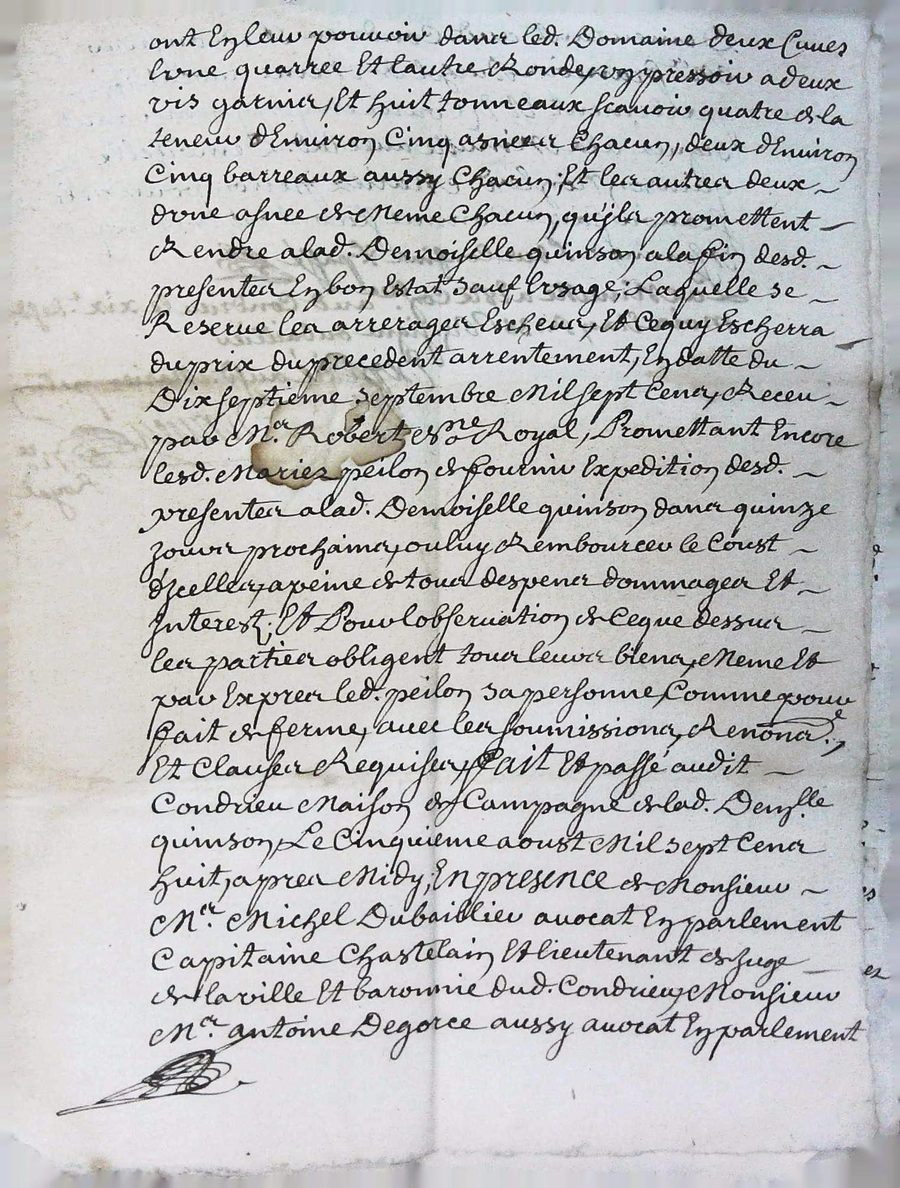 ont En leur pouvoir dans led. Domaine deux Cuves
lvne quarrée Et lautre Ronde, vn pressoir a deux
vis garnis, Et huit tonneaux scavoir quatre de la
teneur dEnviron Cinq asnees Chacun, deux dEnviron
Cinq barreaux aussy Chacun; Et les autres deux
dvne asnee de Meme Chacun, quils promettent
Rendre a lad. Demoiselle quinson a la fin desd.
presentes En bon Estat sauf lvsage; Laquelle se
Reserve les arrerages Escheus, Et Ce quy Escherra
du prix du precedent arrentement, En datte du
Dixseptieme Septembre Mil sept Cens, Receu
par Me. Robert Nore Royal, Promettant Encore
lesd. Mariez peilon de fournir Expedition desd.
presentes a lad. Demoiselle quinson dans quinze
Jours prochains, ou luy Rembourcer le Coust
dIcelles, a peine de tous despens dommages Et
Interest; Et Pour lobservation de Ceque dessus
les parties obligent tous leurs biens, Meme Et
par Expres led. peilon sa personne, Comme pour
fait de ferme, avec les soumissions, Renons.e,
Et Clauses Requises, Fait Et passé audit
Condrieu Maison de Campagne de lad. Demlle
quinson, Le Cinquieme aoust Mil sept Cens
huit, apres Midy; En presence de Monsieur
Me. Michel Dubaillier avocat En parlement
Capitaine Chastelain Et lieutenant de Juge
de la ville Et baronnie dud. Condrieu, Monsieur
Me. antoine Degorce aussy avocat En parlement